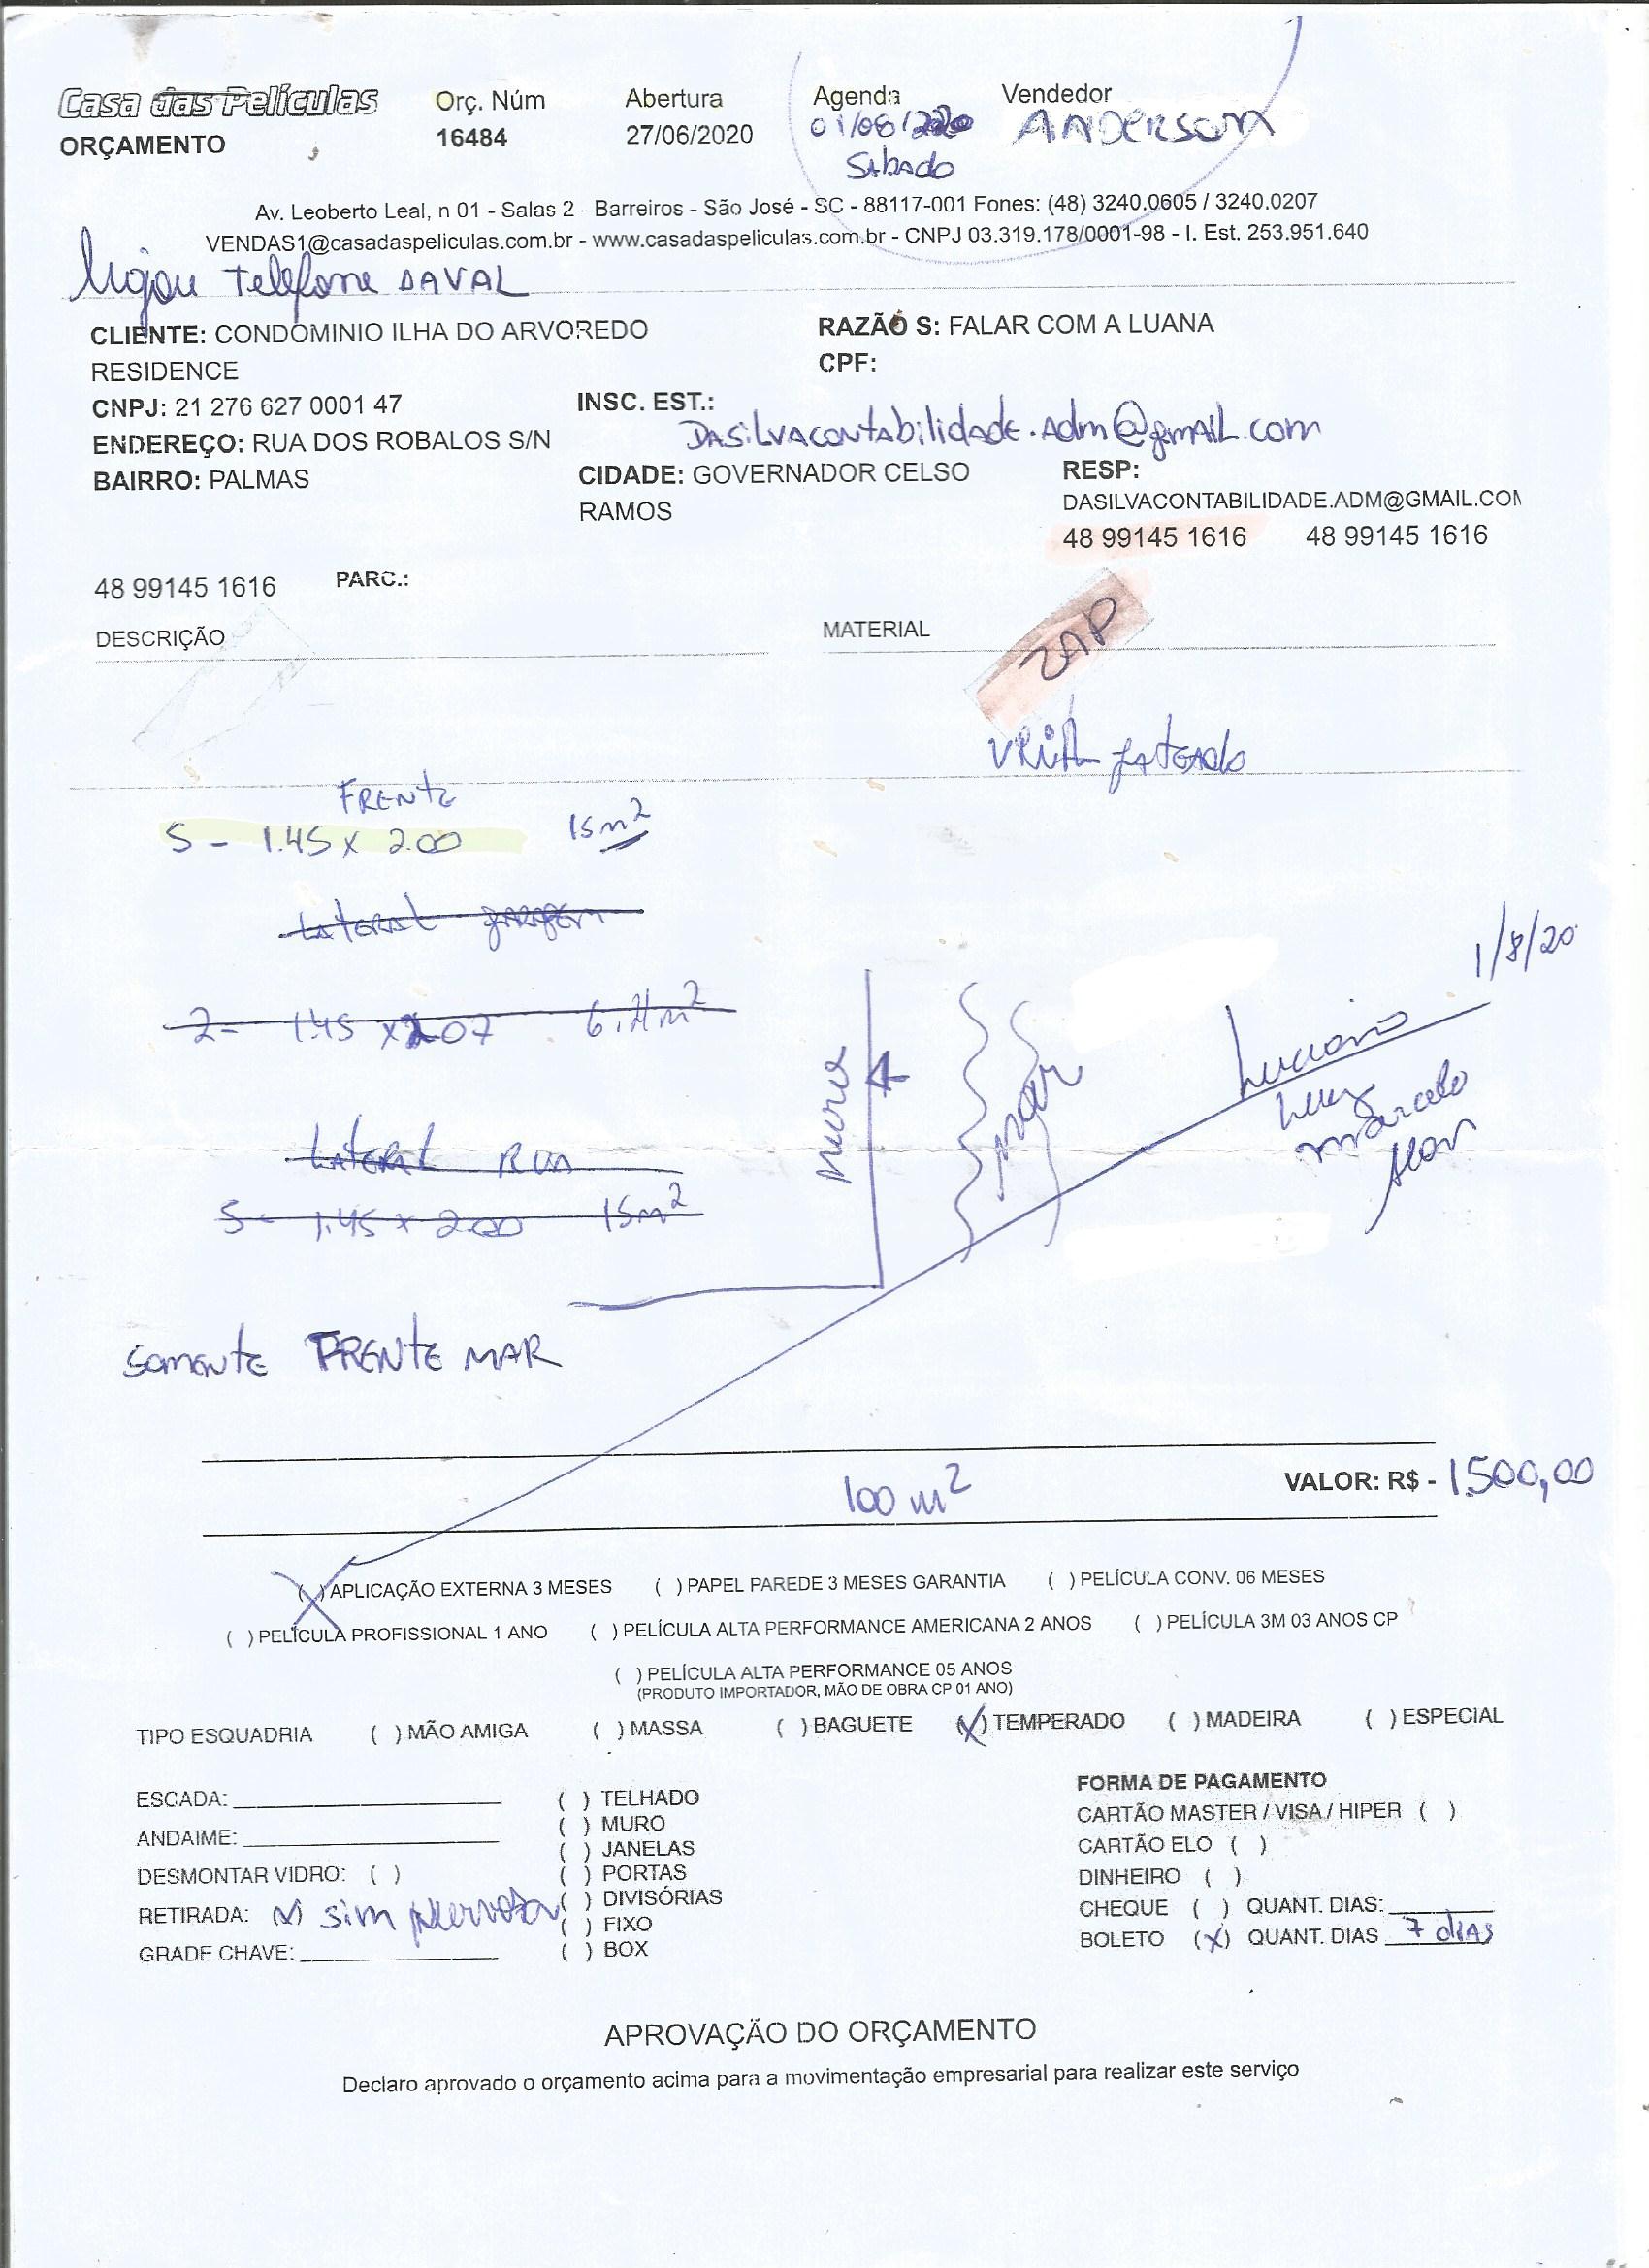 Casa das Películas
ORÇAMENTO
Orç. Núm
16484
Abertura
27/06/2020
Agenda
01/08/2020
Sábado
Vendedor
ANDERSON
Av. Leoberto Leal, n 01 - Salas 2 - Barreiros - São José - SC - 88117-001 Fones: (48) 3240.0605 / 3240.0207
VENDAS1@casadaspeliculas.com.br - www.casadaspeliculas.com.br - CNPJ 03.319.178/0001-98 - I. Est. 253.951.640
Telefone DAVAL
CLIENTE: CONDOMINIO ILHA DO ARVOREDO
RESIDENCE
RAZÃO S: FALAR COM A LUANA
CPF:
CNPJ: 21 276 627 0001 47
INSC. EST.:
DASILVACONTABILIDADE.ADM@GMAIL.COM
ENDEREÇO: RUA DOS ROBALOS S/N
BAIRRO: PALMAS
CIDADE: GOVERNADOR CELSO
RAMOS
RESP:
DASILVACONTABILIDADE.ADM@GMAIL.COM
48 99145 1616 48 99145 1616
48 99145 1616 PARC.:
DESCRIÇÃO
MATERIAL
ZAP
jateado
FRENTE
5 - 1.45 x 2.00 15m²
LATERAL garagem
2- 1.45 x 2.07 m²
LATERAL RUA
5- 1.45 x 2.00 15m²
muro
mar
1/8/20
Luciano
Luiz
Marcelo
SOMENTE FRENTE MAR
100 m²
VALOR: R$ - 1.500,00
(X) APLICAÇÃO EXTERNA 3 MESES ( ) PAPEL PAREDE 3 MESES GARANTIA ( ) PELÍCULA CONV. 06 MESES
( ) PELÍCULA PROFISSIONAL 1 ANO ( ) PELÍCULA ALTA PERFORMANCE AMERICANA 2 ANOS ( ) PELÍCULA 3M 03 ANOS CP
( ) PELÍCULA ALTA PERFORMANCE 05 ANOS
(PRODUTO IMPORTADOR, MÃO DE OBRA CP 01 ANO)
TIPO ESQUADRIA ( ) MÃO AMIGA ( ) MASSA ( ) BAGUETE (X) TEMPERADO ( ) MADEIRA ( ) ESPECIAL
ESCADA:
ANDAIME:
DESMONTAR VIDRO: ( )
RETIRADA: (X) sim
GRADE CHAVE:
( ) TELHADO
( ) MURO
( ) JANELAS
( ) PORTAS
( ) DIVISÓRIAS
( ) FIXO
( ) BOX
FORMA DE PAGAMENTO
CARTÃO MASTER / VISA / HIPER ( )
CARTÃO ELO ( )
DINHEIRO ( )
CHEQUE ( ) QUANT. DIAS:
BOLETO (X) QUANT. DIAS 7 dias
APROVAÇÃO DO ORÇAMENTO
Declaro aprovado o orçamento acima para a movimentação empresarial para realizar este serviço